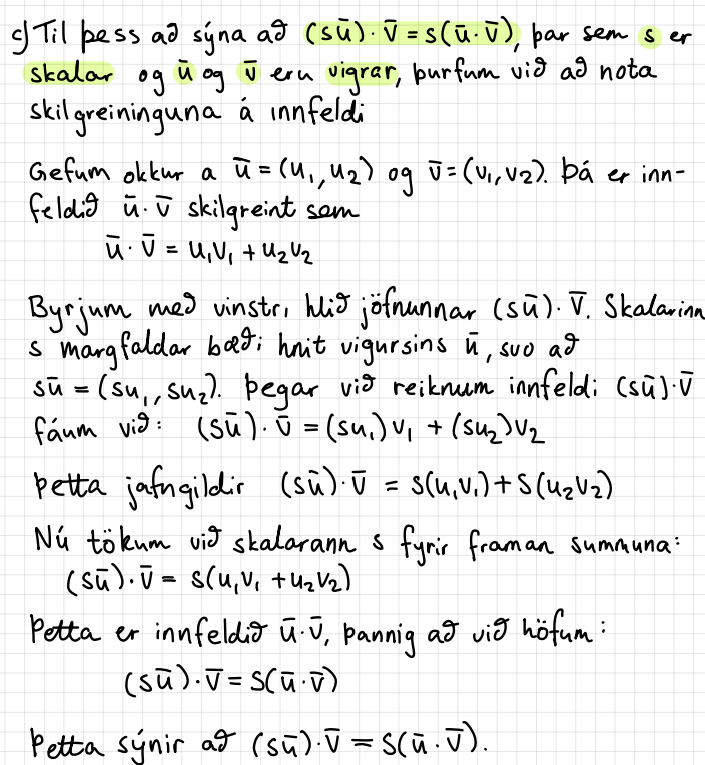 c) Til þess að sýna að (sū)·v̄ = s(ū·v̄), þar sem s er
skalar og ū og v̄ eru vigrar, þurfum við að nota
skilgreininguna á innfeldi
Gefum okkur a ū = (u₁, u₂) og v̄ = (v₁, v₂). Þá er inn-
feldið ū·v̄ skilgreint sem
ū·v̄ = u₁v₁ + u₂v₂
Byrjum með vinstri hlið jöfnunnar (sū)·v̄. Skalarinn
s margfaldar bæði hnit vigursins ū, svo að
sū = (su₁, su₂). Þegar við reiknum innfeldi (sū)·v̄
fáum við: (sū)·v̄ = (su₁)v₁ + (su₂)v₂
Þetta jafngildir (sū)·v̄ = s(u₁v₁) + s(u₂v₂)
Nú tökum við skalarann s fyrir framan summuna:
(sū)·v̄ = s(u₁v₁ + u₂v₂)
Þetta er innfeldið ū·v̄, þannig að við höfum:
(sū)·v̄ = s(ū·v̄)
Þetta sýnir að (sū)·v̄ = s(ū·v̄).